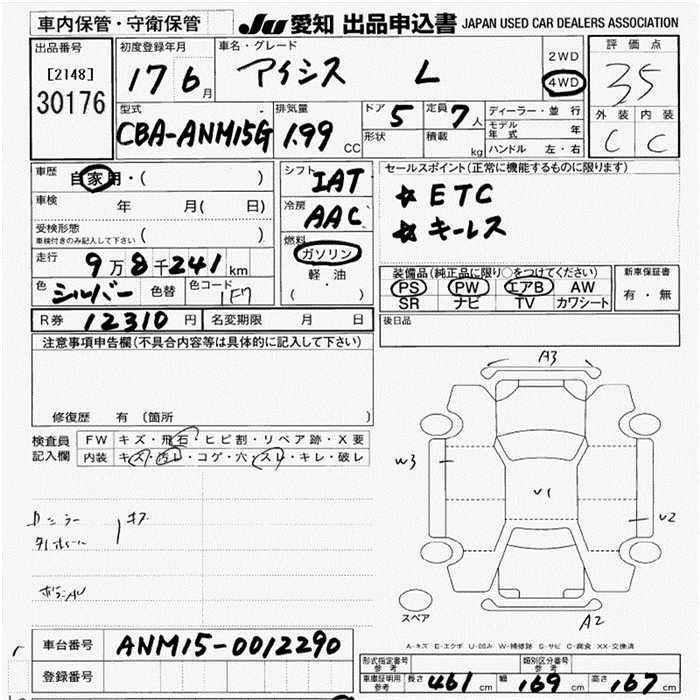 車内保管・守衛保管
JU 愛知 出品申込書 JAPAN USED CAR DEALERS ASSOCIATION
出品番号
[2148]
30176
初度登録年月
17 6月
車名・グレード
アイシス L
2WD
4WD
評価点
3.5
外装 内装
C C
型式
CBA-ANM15G
排気量
1.99 CC
ドア
5
形状
定員
7人
積載 kg
ディーラー・並行
モデル年式 年
ハンドル 左・右
車歴
自家用・( )
車検 年 月( 日)
受検形態
車検付きのみ記入して下さい ( )
走行 9万8千241km
色 シルバー 色替 色コード 1F7
シフト
IAT
冷房
AAC
燃料
ガソリン
軽油
( ・ )
セールスポイント(正常に機能するものに限ります)
☆ ETC
☆ キーレス
装備品(純正品に限り○をつけてください)
PS PW エアB AW
SR ナビ TV カワシート
新車保証書
有・無
R券 12310円 名変期限 月 日
後日品
注意事項申告欄(不具合内容等は具体的に記入して下さい)
修復歴 有 (箇所 )
検査員記入欄
FW キズ・飛石・ヒビ割・リペア跡・X要
内装 キズ・汚レ・コゲ・穴・スレ・キレ・破レ
A3
W3
U1
U2
A2
スペア
A-キズ E-エクボ U-凹み W-補修跡 S-サビ C-腐食 XX-交換済
車台番号 ANM15-0012290
登録番号
形式指定番号 参考
類別区分番号 参考
車庫証明用 参考 長さ 461cm 幅 169cm 高さ 167cm